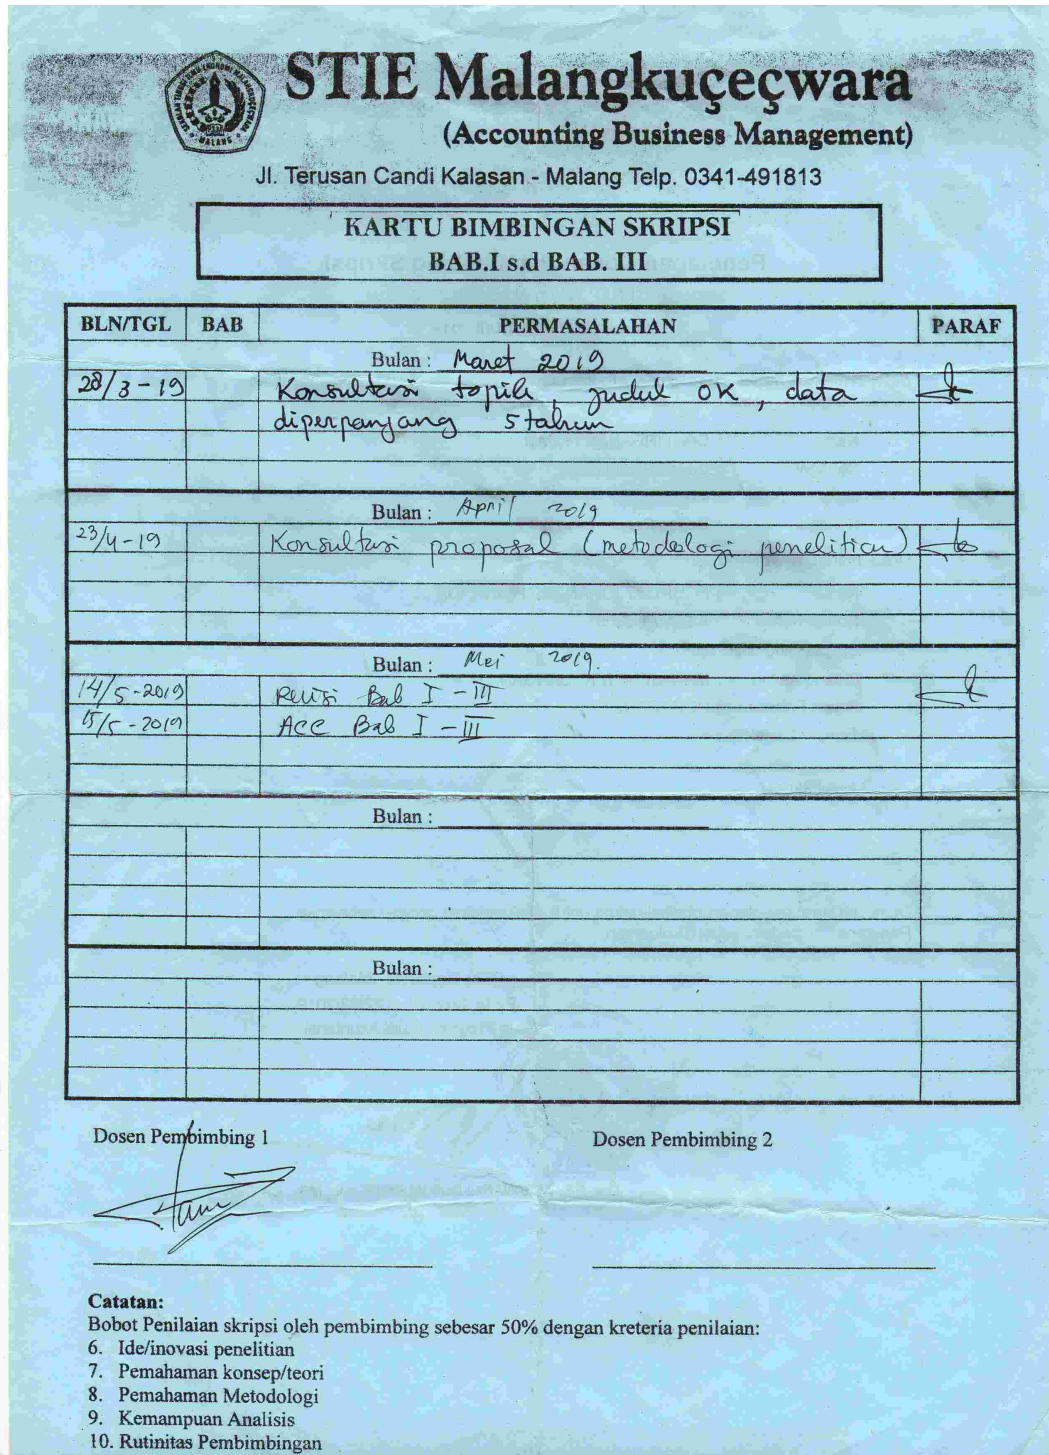 STIE Malangkuçeçwara
(Accounting Business Management)
Jl. Terusan Candi Kalasan - Malang Telp. 0341-491813
KARTU BIMBINGAN SKRIPSI
BAB.I s.d BAB. III
BLN/TGL BAB PERMASALAHAN PARAF
Bulan : Maret 2019
28/3-19 Konsultasi topik, judul OK, data
diperpanjang 5 tahun
Bulan : April 2019
23/4-19 Konsultasi proposal (metodologi penelitian)
Bulan : Mei 2019.
14/5-2019 Revisi Bab I - III
15/5-2019 ACC Bab I - III
Bulan :
Bulan :
Dosen Pembimbing 1 Dosen Pembimbing 2
Catatan:
Bobot Penilaian skripsi oleh pembimbing sebesar 50% dengan kreteria penilaian:
6. Ide/inovasi penelitian
7. Pemahaman konsep/teori
8. Pemahaman Metodologi
9. Kemampuan Analisis
10. Rutinitas Pembimbingan